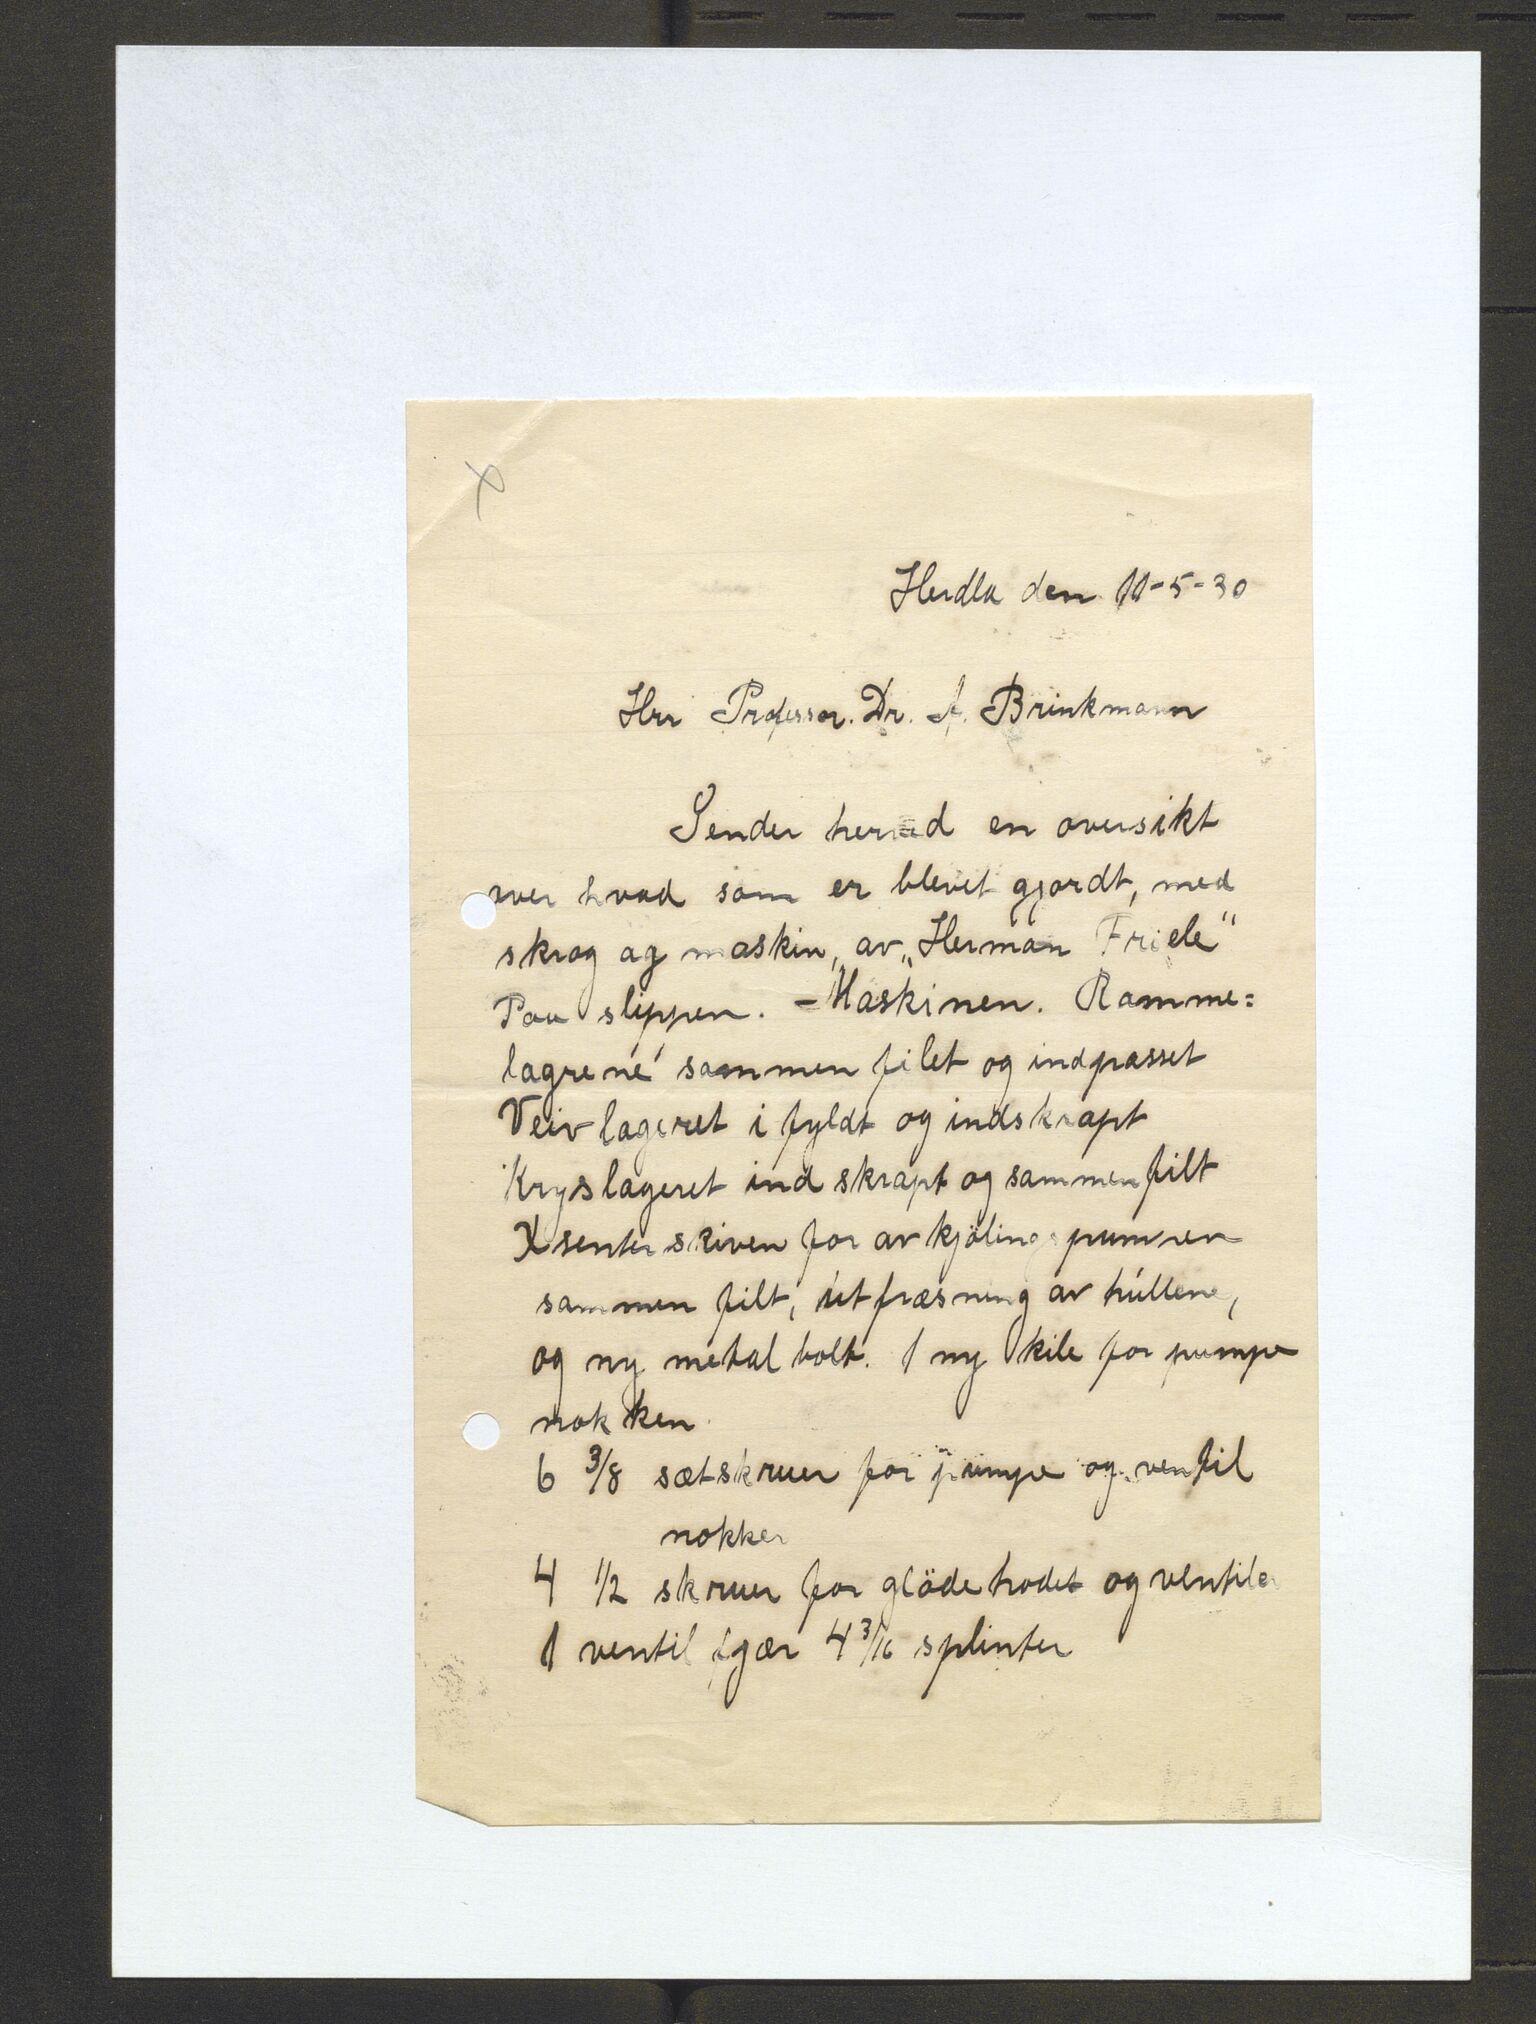 Herdla den 11-5-30
Herr Professor. Dr. A. Brinkmann
Sender herved en oversikt
over hvad som er blevet gjordt, med
skrog og maskin, av „Herman Friele"
Paa slippen. - Maskinen. Ramme=
lagrene sammen filet og indpasset
Veivlageret i fyldt og indskrapt
Kryslageret ind skrapt og sammenfilt
Xsenter skiven for avkjölings pumpen
sammen filt, utfræsning av hullene,
og ny metal bolt. 1 ny kile for pumpe
nokken
6 3/8 sætskruer for pumpe og ventil
nokker
4 1/2 skruer for glödehodet og ventiler
1 ventil fjær 4 3/16 splinter